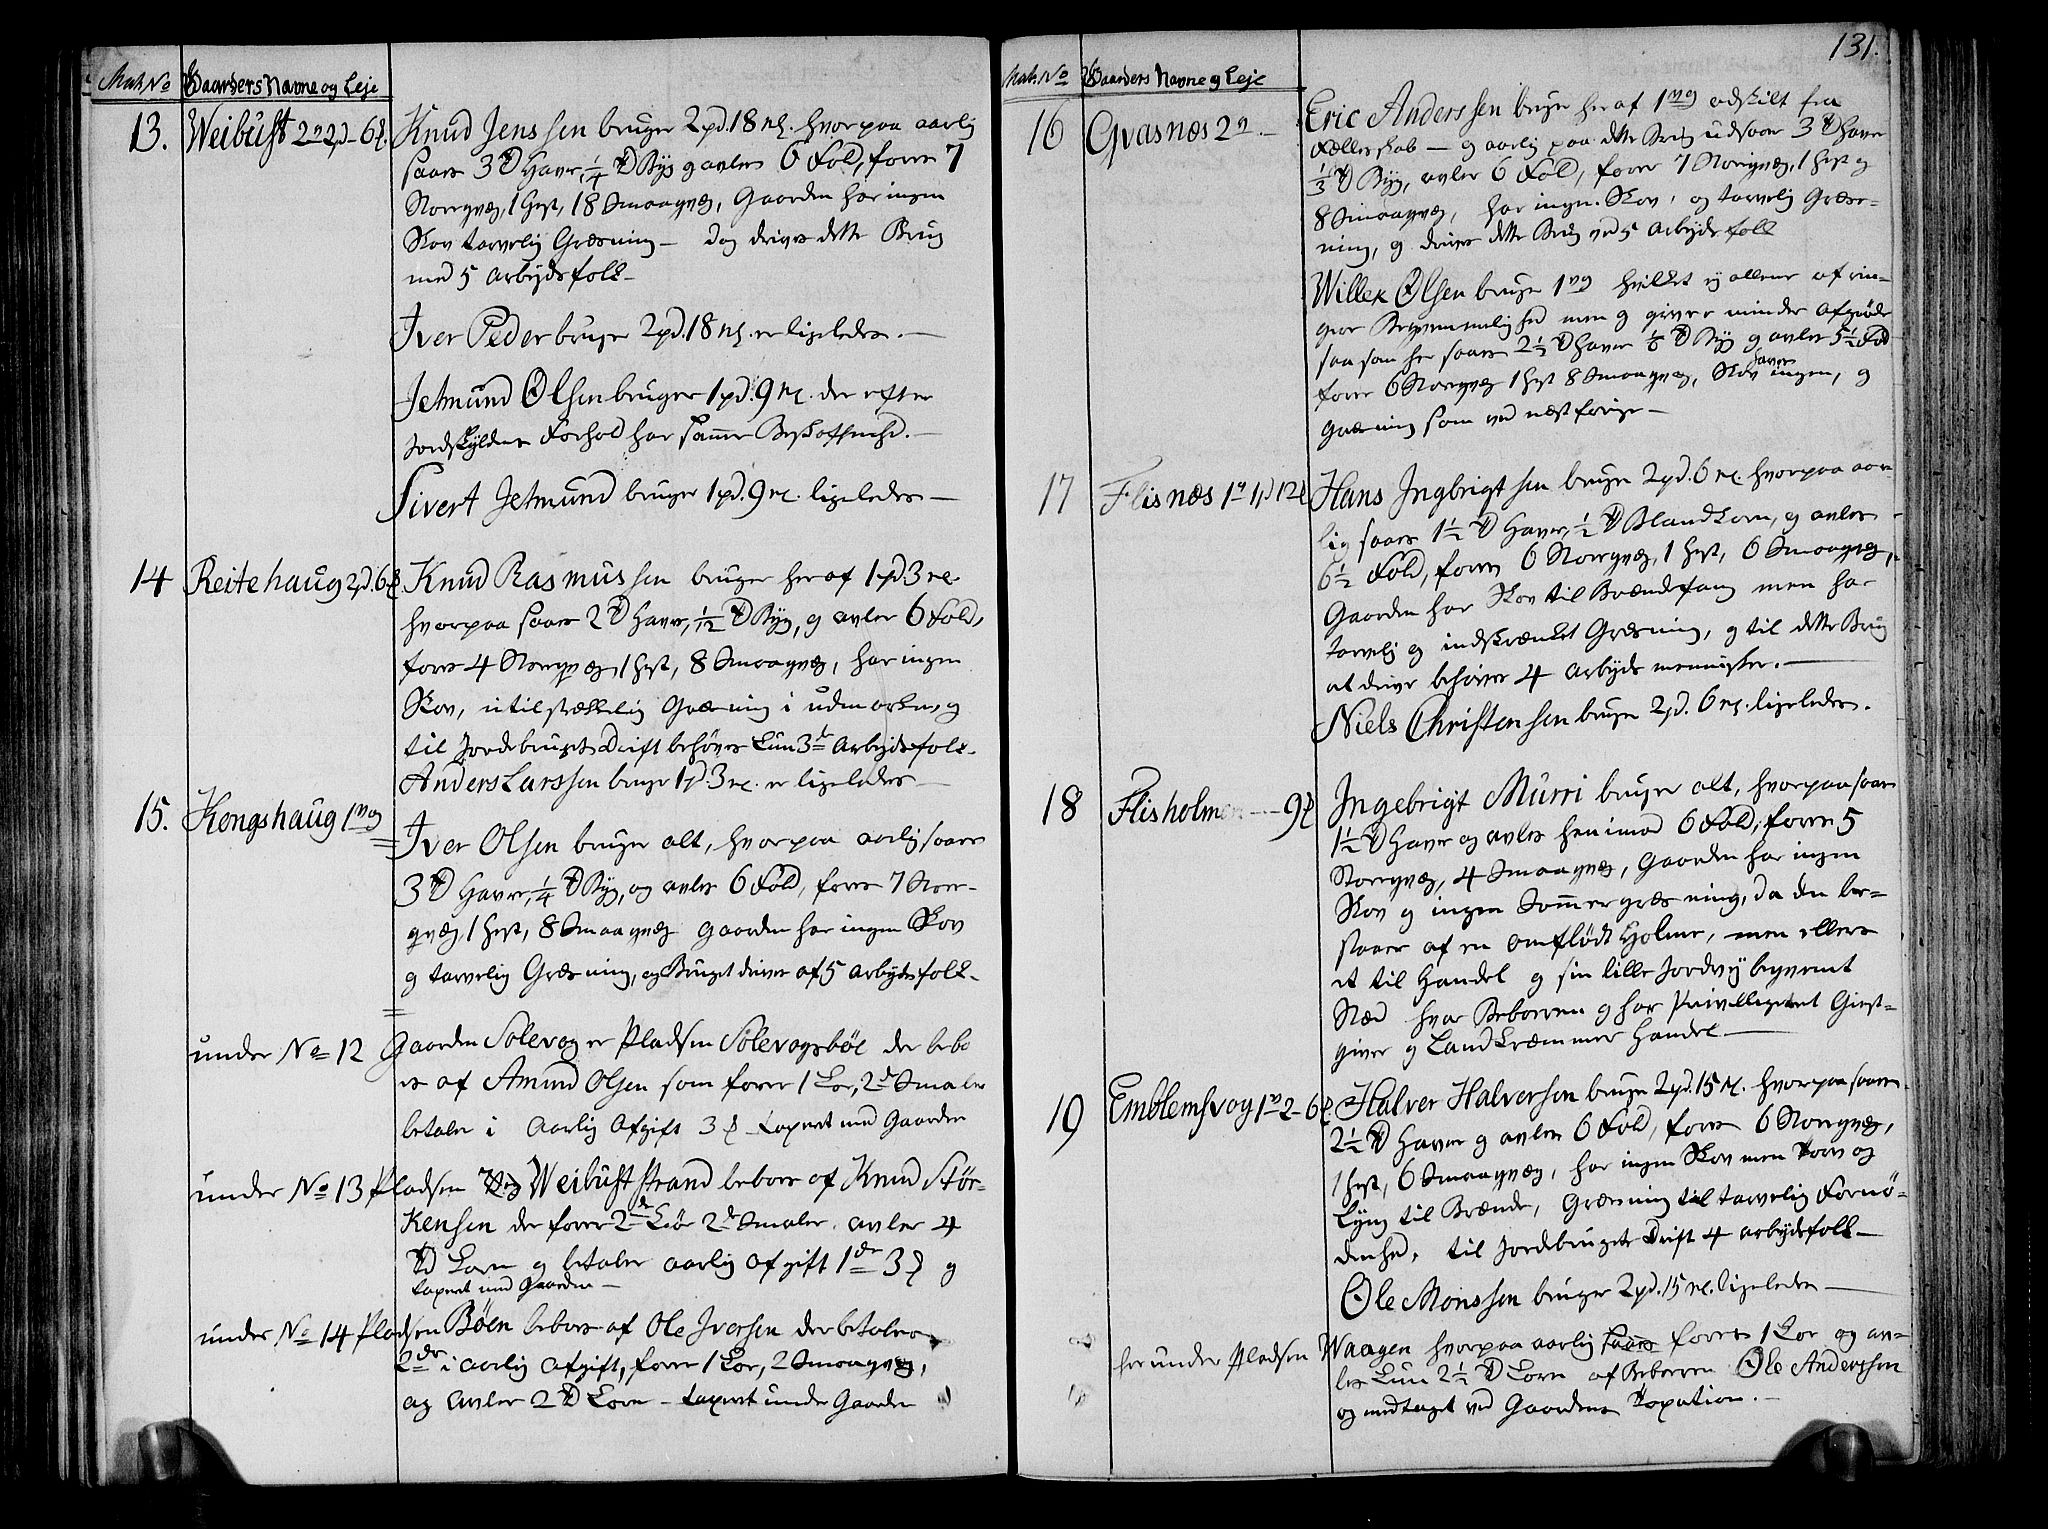 Matr. No Gaardens Navne og Leje
13. Weibust 2v 2pd - 6 Knud Jenssen bruger 2 pd. 18 M. hvorpaa aarlig
saaes 3 Td Haver, 1/4 Td Byg og avles 6 Fold, foer 7
Storqvæg, 1 Hest, 18 Smaaqvæg, Gaarden har ingen
Skov tarvelig Græsning - dog drives dette Brug
med 5 Arbeydsfolk -
Iver Peder bruger 2 pd. 18 M. er ligeledes. -
Jetmund Olsen bruger 1 pd. 9 M. der efter
Jordskylden Forhold har samme Beskaffenhed. -
Sivert Jetmund bruger 1 pd. 9 M. ligeledes -
14 Reitehaug 2pd. 6 Knud Rasmussen bruger her af 1 pd 3 M.
hvorpaa saaes 2 Td Haver, 1/12 Td Byg, og avler 6 Fold,
foer 4 Storqvæg, 1 Hest, 8 Smaaqvæg, har ingen
Skov, utilstrækkelig Græsning i udmarken, og
til Jordebrugets Drift behøves kun 3de Arbeydsfolk.
Anders Larssen bruger 1 pd. 3 M. er ligeledes -
15. Kongshaug 1 vog
Iver Olsen bruger alt, hvorpaa aarlig saaes
3 Td Haver, 1/4 Td Byg, og avles 6 Fold, foer 7 Stor-
qvæg, 1 Hest, 8 Smaaqvæg Gaarden har ingen Skov
og tarvelig Græsning, og Bruget drives af 5 Arbeydsfolk.
under No 12 Gaarden Solevog er Pladsen Solevogsbøe der beboe
es af Amund Olsen som foer 1 Koe, 2de Smaler
betaler i Aarlig Afgift 3 taxeret med Gaarden
under No 13 Pladsen Weibust strand beboes af Knud Stør-
kensen der foer 2de Kiør 2de Smaler. avler 4
Td Korn og betaler aarlig Afgift 1 dr 3 og
taxeret med Gaarden -
under No 14 Pladsen Bøen beboes af Ole Iversen der betaler
2 dr i Aarlig Afgift, foer 1 Koe, 2 Smaaqvæg,
og Avler 2 Td Korn - taxeret under Gaarden
131.
Matr. No Gaardens Navne og Leje
16 Qvasnæs 2v. Eric Anderssen bruger her af 1 vog adskilt fra
Fælleskab - og aarlig paa dette Brug udsaaer 3 Td Haver
1/3 Td Byg, avler 6 Fold, foer 7 Storqvæg, 1 Hest og
8 Smaaqvæg, har ingen Skov, og tarvelig Græs-
ning, og drives dette Brug ved 5 Arbeydsfolk
Willex Olsen bruger 1 vog hvilket ej allene af rin-
gere Beqvemmelighed men og giver mindre afgrøde
saasom her saaes 2 1/2 Td Haver 1/6 Td Byg og avler 5 1/2 Fold
foer 6 Storqvæg 1 Hest 8 Smaaqvæg, Skov haves ingen, og
Græsning som ved næst forrige -
17 Flisnæs 1v 1pd 12 Hans Ingbrigtsen bruger 2 pd. 6 M. hvorpaa aar-
lig saaes 1 1/2 Td Haver, 1/2 Td Blandkorn, og avles
6 1/2 Fold, foer 6 Storqvæg, 1 Hest, 6 Smaaqvæg,
Gaarden har Skov til Brændefang men har
tarvelig og indskrænket Græsning, og til dette Brug
at drive behøves 4 Arbeyds mennisker. -
Niels Christensen bruger 2 pd. 6 M. ligeledes.
18 Flisholmen --- 9 Ingebrigt Murri bruger alt, hvorpaa saaes
1 1/2 Td Haver og avles henimod 6 Fold, foer 5
Storqvæg, 4 Smaaqvæg, Gaarden har ingen
Skov og ingen Sommergræsning, da den be-
staaer af en omflödt Holme, men ellers
et til Handel og sin lille Jordvej beqvemt
Stæd hvor Beboeren og har Privilligeret Giest-
giver og Landkræmmer Handel -
19 Emblemsvog 1v 2 - 6 Halver Halversen bruger 2 pd. 15 M. hvorpaa saaes
2 1/2 Td Haver og avles 6 Fold, foer 6 Storqvæg,
1 Hest, 6 Smaaqvæg, har ingen Skov men Torv og
Lyng til Brænde, Græsning til tarvelig Fornø-
denhed, til Jordebrugets Drift 4 Arbeydsfolk -
Ole Monssen bruger 2 pd. 15 M. ligeledes -
her under Pladsen Waagen hvorpaa aarlig saaes foeres 1 Koe og av-
les kun 2 1/2 Td Korn af Beboeren Ole Anderssen
og medtaget ved Gaardens Taxation. -